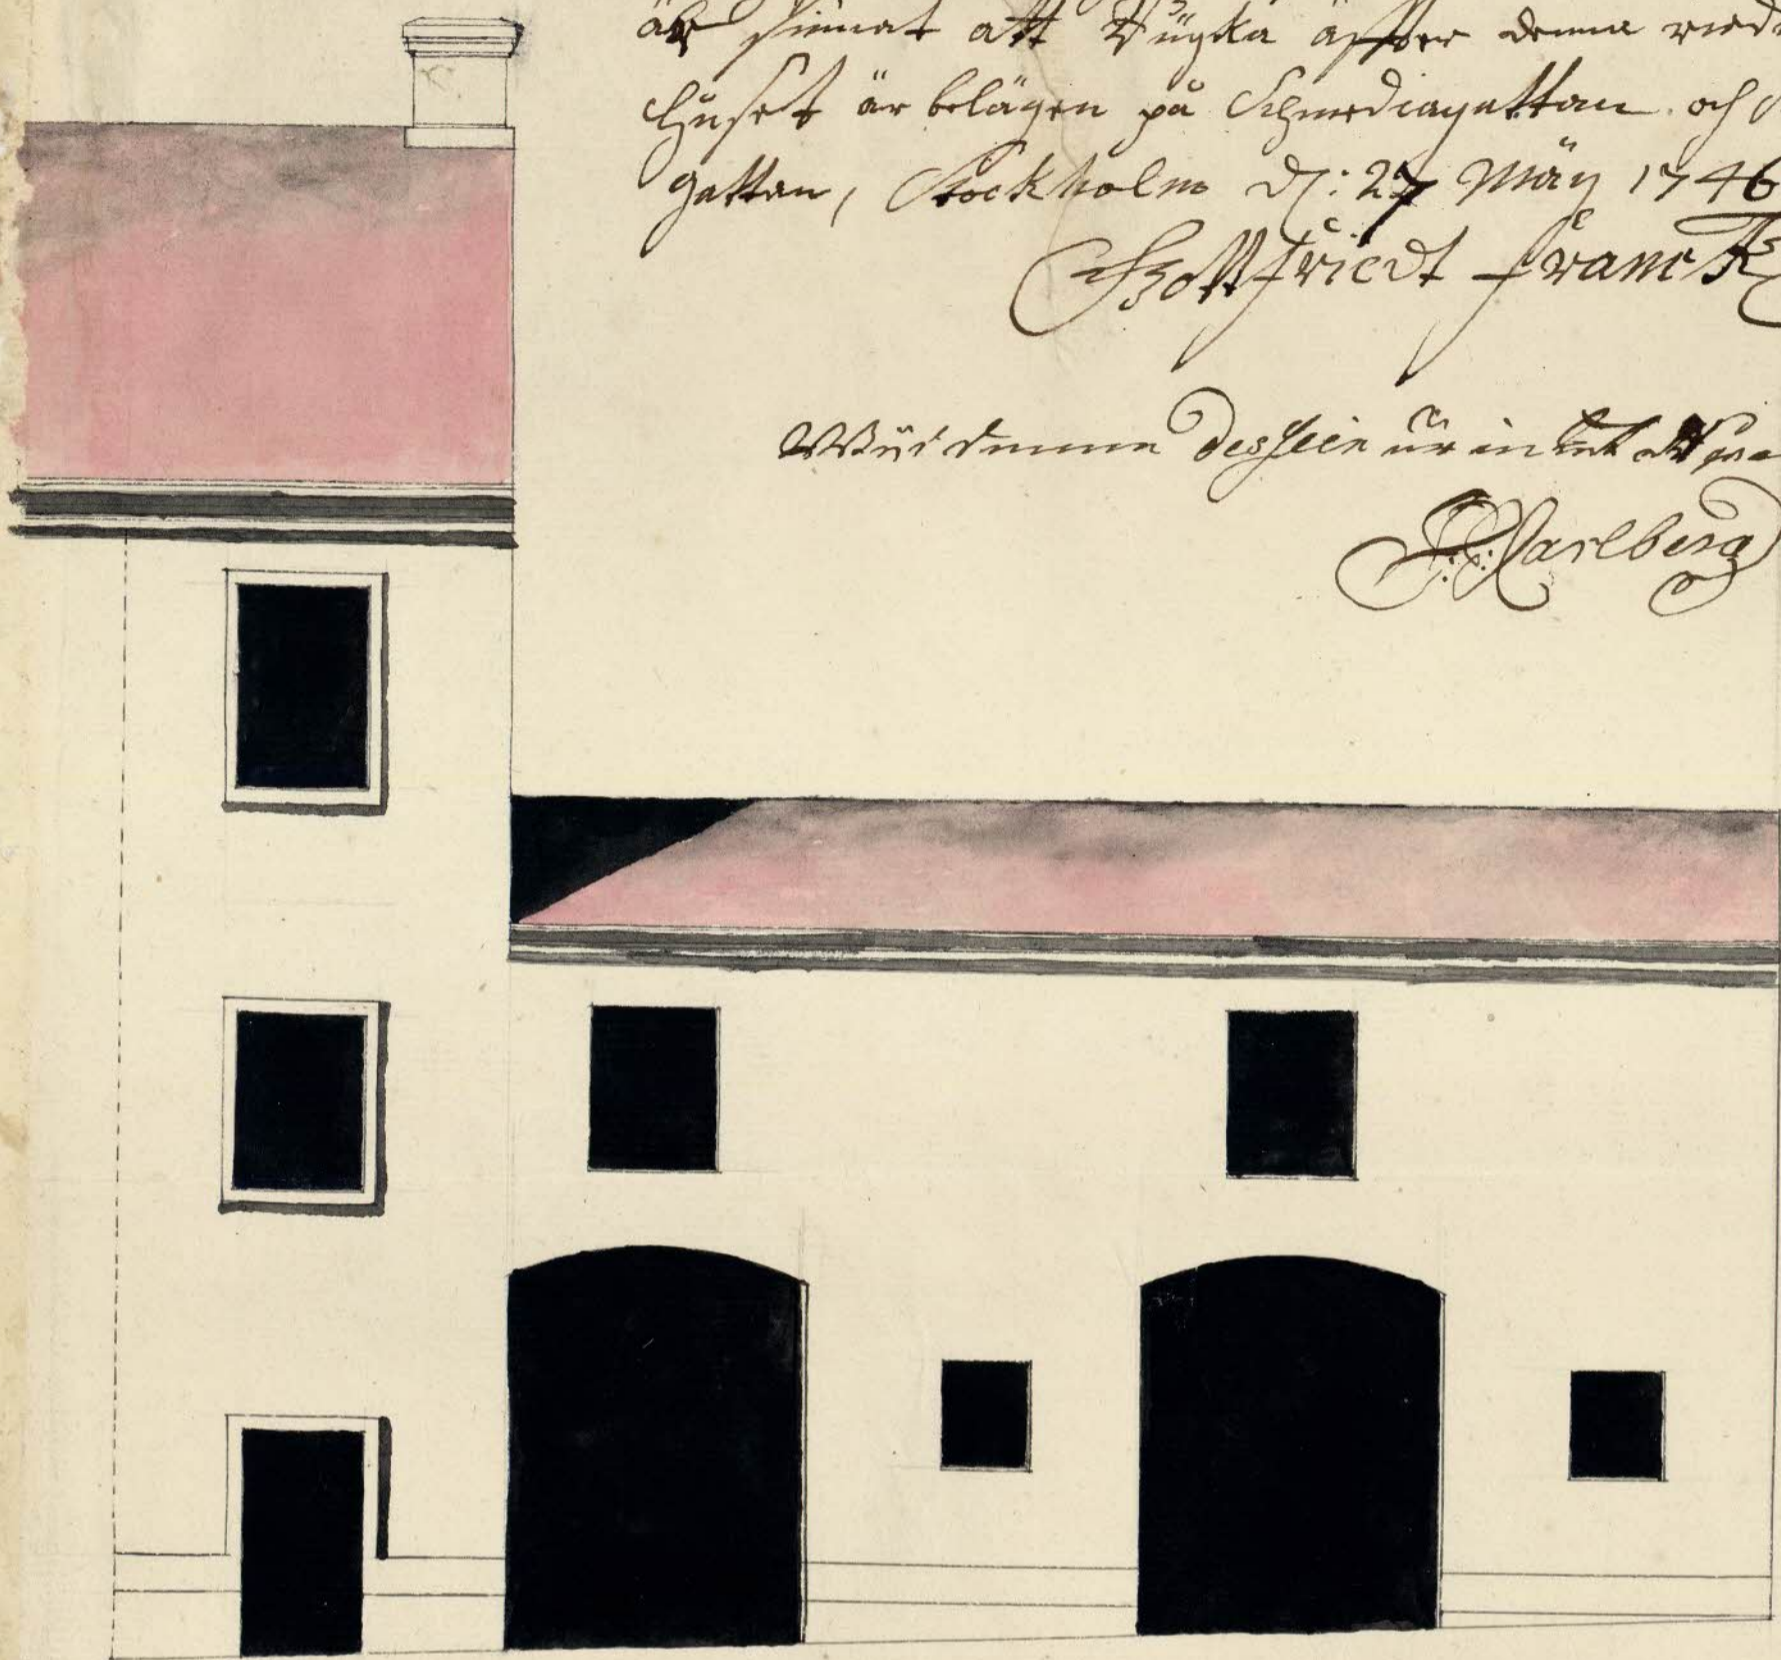 är sinnat att Bÿgka äffter denna
Huset är belägen på Schmediagattan och
gattan, Stockholm d: 27 Maÿ 1746
Gottfriedt Franck
denna Dessein är intet att
J: E: Carlberg